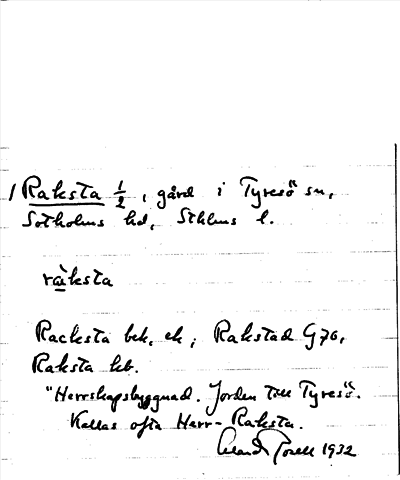 / Raksta 1/2, gård i Tyresö sn,
Sotholms hd, Sthlms l.
ràksta
Racksta bek, ek; Rakstad G76,
Raksta hb.
"Herrskapsbyggnad. Jorden till Tyresö.
Kallas ofta Herr-Raksta.
1932